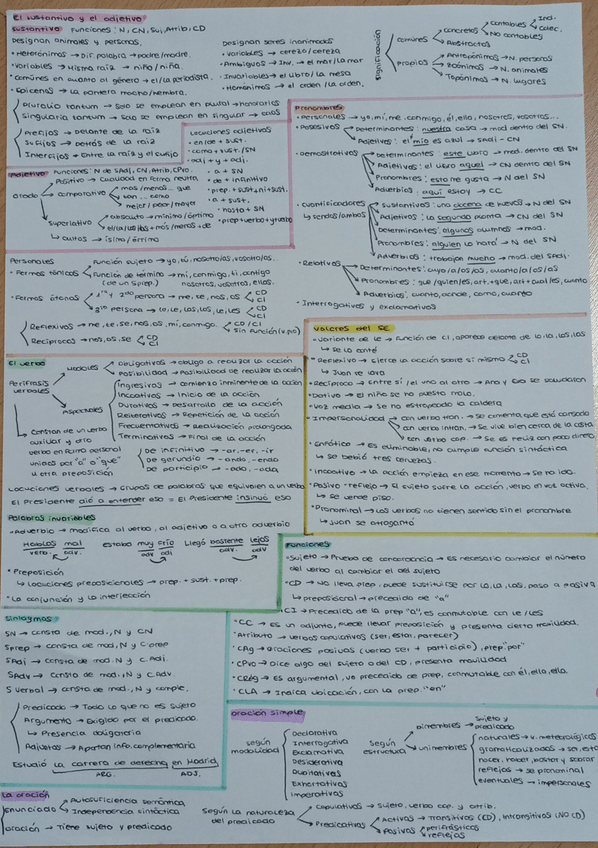 El sustantivo y el adjetivo
Sustantivo Funciones: N, CN, Suj, Atrib, CD
Designan animales y personas.
• Heterónimos → Dif. palabra → padre/madre.
• Variables → Misma raíz → niño/niña
• Comunes en cuanto al género → el/la periodista.
• Epicenos → La pantera macho/hembra.
Designan seres inanimados
• Variables → cerezo/cereza
• Ambiguos → Inv. → el mar/la mar
• Invariables → el libro/la mesa
• Homónimos → el orden/la orden.
Significación
Comunes
Concretos
Contables
Ind.
Colec.
No contables
Abstractos
Propios
Antropónimos → N. personas
Zoónimos → N. animales
Topónimos → N. lugares
Pluralia tantum → Solo se emplean en plural → honorarios
Singularia tantum → Solo se emplean en singular → caos
Prefijos → Delante de la raíz
Sufijos → Detrás de la raíz
Interfijos → Entre la raíz y el sufijo
Locuciones adjetivas
• en/de + sust.
• como + sust./SN
• adj + y + adj.
• a + SN
• de + infinitivo
• prep + sust + ni + sust.
• a + sust.
• hasta + SN
• prep + verbo + y + verbo
Adjetivo Funciones: N de SAdj, CN, Atrib, CPvo.
Grado
Positivo → Cualidad en forma neutra
Comparativo
más/menos... que
tan ... como
mejor/peor/mayor
Superlativo
absoluto → mínimo/óptimo
el/la/los/las + más/menos + de
cultos → ísimo/érrimo
Pronombres
• Personales → yo, mí, me, conmigo, él, ello, nosotros, vosotros...
• Posesivos
Determinantes: nuestra casa → mod dentro del SN.
Adjetivos: el mío es azul → SAdj - CN
• Demostrativos
Determinantes: este libro → mod. dentro del SN
Adjetivos: el libro aquel → CN dentro del SN
Pronombres: esto me gusta → N del SN
Adverbios: aquí estoy → CC
• Cuantificadores
↳ sendos/ambos
Sustantivos: una docena de huevos → N del SN
Adjetivos: La segunda planta → CN del SN
Determinantes: algunos alumnos → mod.
Pronombres: alguien lo hará → N del SN
Adverbios: trabajan mucho → mod. del SAdj.
• Relativos
Determinantes: cuyo/a/os/as, cuanto/a/os/as
Pronombres: que/quien/es, art. + que, art + cual/es, cuanto
Adverbios: cuanto, donde, como, cuanto
• Interrogativos y exclamativos
Personales
• Formas tónicas
Función sujeto → yo, tú, nosotros/as, vosotros/as.
Función de término → mí, conmigo, ti, contigo
(de un Sprep.) nosotros, vosotros, ellos.
• Formas átonas
1ª y 2ª persona → me, te, nos, os
CD
CI
3ª persona → lo, le, las, los, le, les
CD
CI
Reflexivos → me, te, se, nos, os, mí, conmigo.
CD/CI
Sin función (v.pro)
Recíprocos → nos, os, se
CD
CI
Valores del SE
• Variante de le → Función de CI, aparece delante de lo, la, los, las
↳ Se la canté
• Reflexivo → ejerce la acción sobre sí mismo
CD
CI
↳ Juan se lava
• Recíproco → Entre sí / el uno al otro → Ana y Eva se saludaban
• Dativo → El niño se ha puesto malo.
• Voz media → Se ha estropeado la caldera
• Impersonalidad
con verbo tran. → Se comenta que está cansado
con verbo intran. → Se vive bien cerca de la costa
con verbo cop. → Se es feliz con poco dinero
• Enfático → Es eliminable, no cumple función sintáctica
↳ Se bebió tres cervezas.
• Incoativo → La acción empieza en ese momento → Se ha ido.
• Pasivo-reflejo → El sujeto sufre la acción, verbo en voz activa.
↳ Se vende piso.
• Pronominal → Los verbos no tienen sentido sin el pronombre
↳ Juan se atragantó
El verbo
Perífrasis verbales
Modales
Obligativas → Obliga a realizar la acción
Posibilidad → Posibilidad de realizar la acción
Aspectuales
Ingresivas → Comienzo inminente de la acción
Incoativas → Inicio de la acción
Durativas → Desarrollo de la acción
Reiterativas → Repetición de la acción
Frecuentativas → Realización prolongada
Terminativas → Final de la acción
↳ Constan de un verbo
auxiliar y otro
verbo en forma personal
unidos por "a" o "que"
u otra preposición
De infinitivo → -ar, -er, -ir
De gerundio → -ando, -endo
De participio → -ado, -ada
Locuciones verbales → Grupos de palabras que equivalen a un verbo
El Presidente dio a entender eso = El Presidente insinuó eso
Palabras invariables
• Adverbio → modifica al verbo, al adjetivo o a otro adverbio
Hablas mal estaba muy frío Llegó bastante lejos
verbo adv. adv adj adv. adv.
• Preposición
↳ Locuciones preposicionales → prep. + sust. + prep.
• La conjunción y la interjección
Funciones
• Sujeto → Prueba de concordancia → es necesario cambiar el número
del verbo al cambiar el del sujeto
• CD → No lleva prep., puede sustituirse por lo, la, los, pasa a pasiva
↳ preposicional → precedida de "a"
• CI → Precedido de la prep "a", es conmutable con le/les
• CC → Es un adjunto, puede llevar preposición y presenta cierta movilidad.
• Atributo → verbos copulativos (ser, estar, parecer)
• CAg → Oraciones pasivas (verbo ser + participio), prep "por"
• CPvo → Dice algo del sujeto o del CD, presenta movilidad
• CRég → Es argumental, va precedido de prep, conmutable con él, ello, ella.
• CLA → Indica ubicación, con la prep. "en"
Sintagmas
SN → consta de mod., N y CN
Sprep → consta de mod, N y C prep
SAdj → consta de mod, N y C. Adj.
SAdv → Consta de mod., N y C. Adv
S Verbal → consta de mod., N y comple.
Predicado → Todo lo que no es sujeto
Argumento → Exigido por el predicado
↳ Presencia obligatoria
Adjuntos → Aportan info. complementaria
Estudió la carrera de derecho en Madrid
ARG. ADJ.
Oración simple
Según modalidad
Declarativa
Interrogativa
Exclamativa
Desiderativa
Dubitativas
Exhortativas
Imperativas
Según estructura
bimembres
Sujeto y
predicado
unimembres
naturales → v. meteorológicos
gramaticalizadas → ser, esta
hacer, haber, bastar y sobrar
reflejas → se pronominal
eventuales → impersonales
La oración
Enunciado
Autosuficiencia semántica
Independencia sintáctica
Oración → Tiene sujeto y predicado
Según la naturaleza
del predicado
Copulativas → sujeto, verbo cop. y atrib.
Predicativas
Activas → Transitivas (CD), Intransitivas (NO CD)
Pasivas
perifrásticas
reflejas